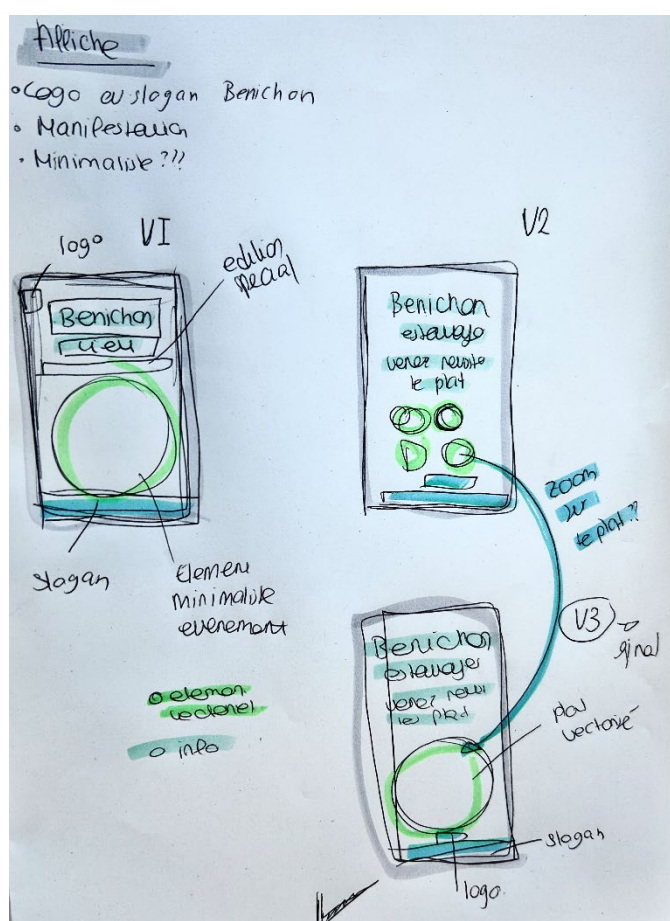 Affiche
Logo et slogan Benichon
Manifestation
Minimaliste ???
V1
logo
edition
special
Benichon
lieu
slogan
Element
minimaliste
evenement
V2
Benichon
estavayer
venez
le plat
zoom
sur
le plat ??
V3
final
Benichon
estavayer
venez
plat
vectorisé
slogan
logo
element
vectoriel
info